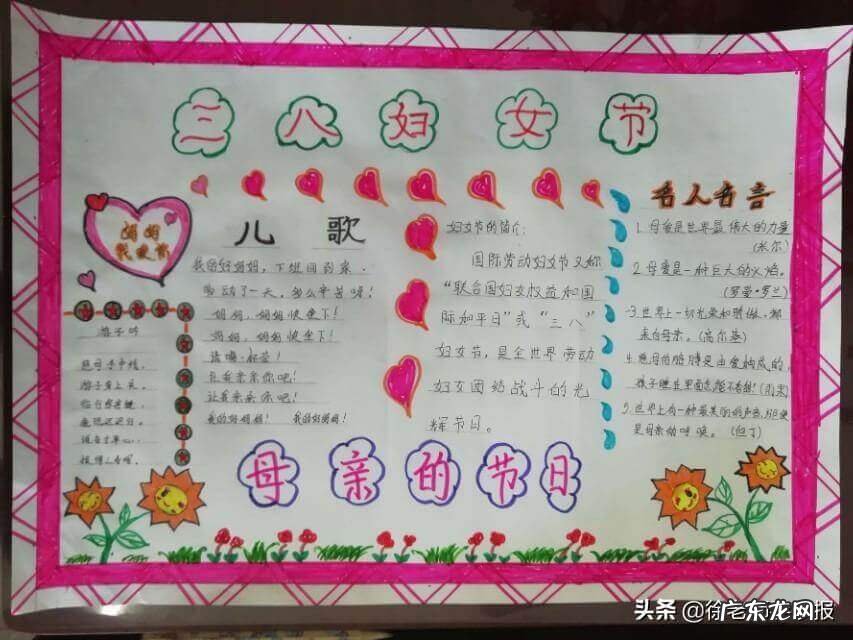 三八妇女节
妈妈
我爱你
儿歌
我的好妈妈，下班回到家，
劳动了一天，多么辛苦呀！
妈妈，妈妈快坐下！
妈妈，妈妈快坐下！
请喝一杯茶！
让我亲亲你吧！
让我亲亲你吧！
我的好妈妈！ 我的好妈妈！
游子吟
慈母手中线，
游子身上衣。
临行密密缝，
意恐迟迟归。
谁言寸草心，
报得三春晖。
妇女节的简介：
国际劳动妇女节又称
“联合国妇女权益和国
际和平日”或“三八”
妇女节，是全世界劳动
妇女团结战斗的光
辉节日。
名人名言
1.母爱是世界最伟大的力量
(米尔)
2.母爱是一种巨大的火焰。
(罗曼·罗兰)
3.世界上一切光荣和骄傲，都
来自母亲。(高尔基)
4.慈母的胳膊是由爱构成的，
孩子睡在里面怎能不香甜！(雨果)
5.世界上有一种最美丽的声音，那便
是母亲的呼唤。(但丁)
母亲的节日
头条
广东龙网